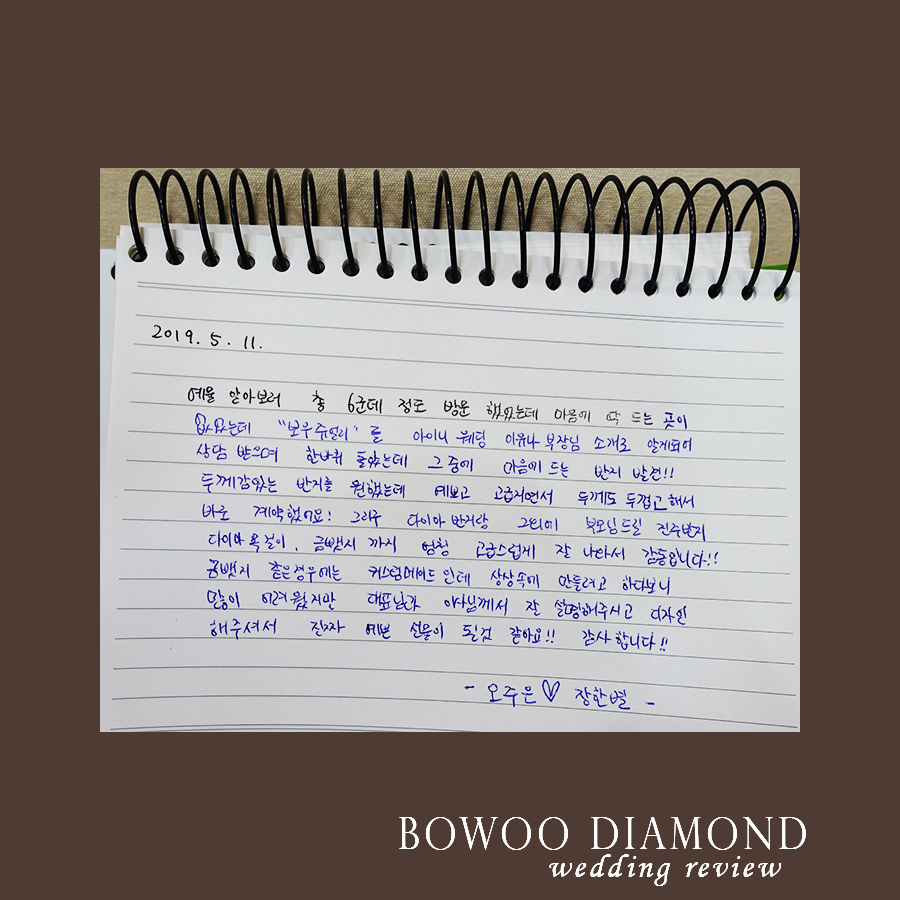 2019. 5. 11.
예물 알아보러 총 6군데 정도 방문 했었는데 마음에 딱 드는 곳이
없었는데 "보우쥬얼리"를 아이니 웨딩 이유나 부장님 소개로 알게되어
상담 받으며 한바퀴 돌았는데 그 중에 마음에 드는 반지 발견!!
두께감있는 반지를 원했는데 예쁘고 고급지면서 두께도 두껍고 해서
바로 계약했어요! 그리구 다이아 반지랑 그외에 부모님드릴 진주반지
다이아 목걸이, 금뱃지 까지 엄청 고급스럽게 잘 나와서 감동입니다!!
금뱃지 같은경우에는 커스텀메이드 인데 상상속에 만들려고 하다보니
많이 어려웠지만 대표님과 이사님께서 잘 설명해주시고 디자인
해주셔서 진짜 예쁜 선물이 될것 같아요!! 감사합니다!!
- 오주은♡ 장한별 -
BOWOO DIAMOND
wedding review